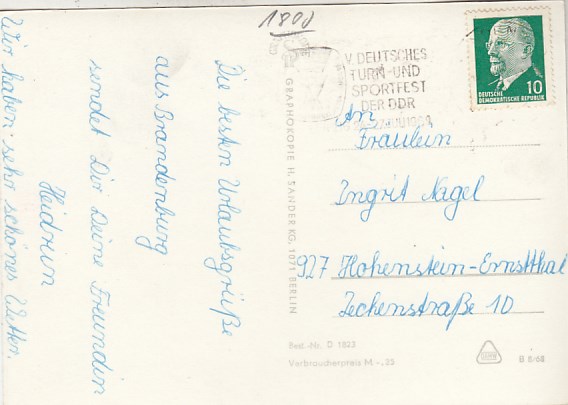 1800
V. DEUTSCHES
TURN-UND
SPORTFEST
DER DDR
10
DEUTSCHE
DEMOKRATISCHE REPUBLIK
Die besten Urlaubsgrüße
aus Brandenburg
sendet Dir Deine Freundin
Heidrun
Wir haben sehr schönes Wetter.
GRAPHOKOPIE H. SANDER KG, 1071 BERLIN
An
Fräulein
Ingrit Nagel
927 Hohenstein-Ernstthal
Zechenstraße 10
Best.-Nr. D 1823
Verbraucherpreis M -,25
B 6/68